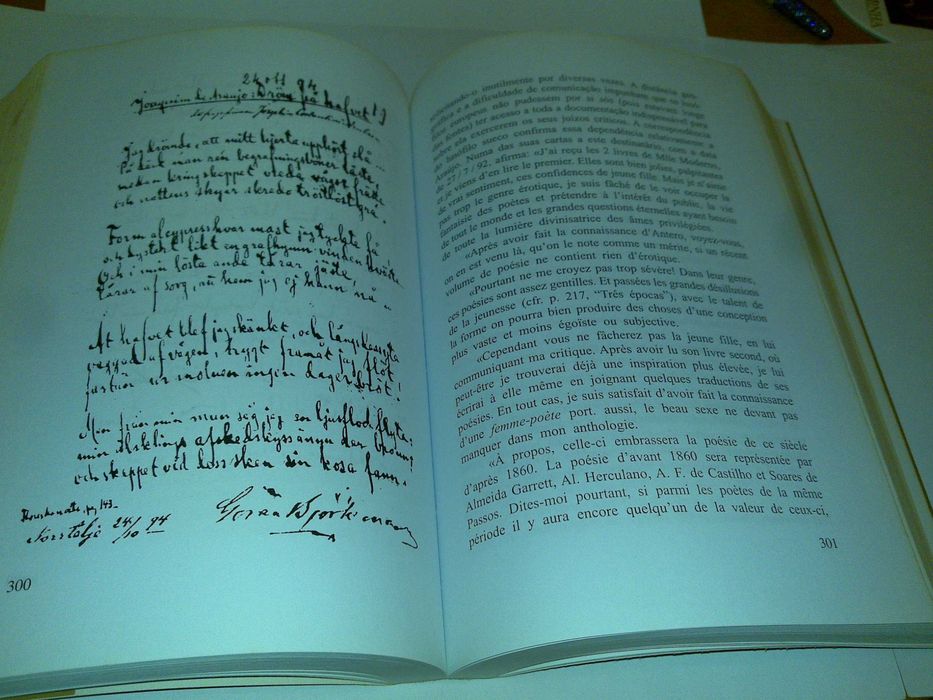 24 oct 94
Joaquim de Araujo: Dröm på hafvet
Jag kände, att mitt hjerta upphört slå ...
På däck man ren begrafningsbönen läste,
medan kring skeppet vreda vågor fräste
och nattens skyar skredo tröstlöst grå.
Form af cypress hvar mast jag tyckte få,
och hystert likt en grafhymn vinden hväste
Och i min lösta ande tårar jäste,
tårar af sorg,
At hafvet blef jag skänkt, och
vaggad af vågen, tryggt framåt jag flöt
fastän ur molnen ingen dager bröt!
Men från min mun såg jag en ljusflod flyta:
min älsklings afskedskyss ännu der brann!
och skeppet vid dess sken sin kosa fann.
Norrtälje 24/10 94
Göran Björkman
300
inutilmente por diversas vezes. A distância geo-
gráfica e a dificuldade de comunicação impunham que os lusó-
filos europeus não pudessem por si sós (pois estavam longe
das fontes) ter acesso a toda a documentação indispensável para
sobre ela exercerem os seus juízos críticos. A correspondência
do lusófilo sueco confirma essa dependência relativamente a
Araújo. Numa das suas cartas a este destinatário, com a data
de 27 / 7 / 92, afirma: «J'ai reçu les 2 livres de Mlle Moderno,
et je viens d'en lire le premier. Elles sont bien jolies, palpitantes
de vrai sentiment, ces confidences de jeune fille. Mais je n'aime
pas trop le genre érotique, je suis fâché de le voir occuper la
fantaisie des poètes et prétendre à l'intérêt du public, la vie
de tout le monde et les grandes questions éternelles ayant besoin
de toute la lumière divinisatrice des âmes privilégiées.
«Après avoir fait la connaissance d'Antero, voyez-vous,
on en est venu là, qu'on le note comme un mérite, si un récent
volume de poésie ne contient rien d'érotique.
«Pourtant ne me croyez pas trop sévère! Dans leur genre,
ces poésies sont assez gentilles. Et passées les grandes désillutions
de la jeunesse (cfr. p. 217, "Três épocas"), avec le talent de
la forme on pourra bien produire des choses d'une conception
plus vaste et moins égoïste ou subjective.
«Cependant vous ne fâcherez pas la jeune fille, en lui
communiquant ma critique. Après avoir lu son livre second, où
peut-être je trouverai déjà une inspiration plus élevée, je lui
écrirai à elle même en joignant quelques traductions de ses
poésies. En tout cas, je suis satisfait d'avoir fait la connaissance
d'une femme-poète port. aussi, le beau sexe ne devant pas
manquer dans mon anthologie.
«À propos, celle-ci embrassera la poésie de ce siècle
d'après 1860. La poésie d'avant 1860 sera représentée par
Almeida Garrett, Al. Herculano, A. F. de Castilho et Soares de
Passos. Dites-moi pourtant, si parmi les poètes de la même
période il y aura encore quelqu'un de la valeur de ceux-ci,
301